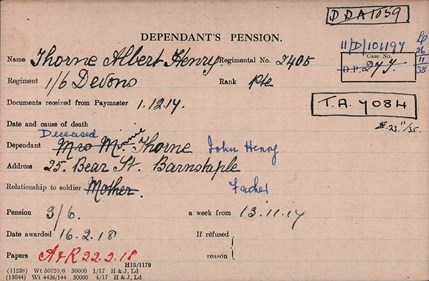 DDA1039
DEPENDANT'S PENSION.
11/D/10119Y
Name Thorne Albert Henry Regimental No. 2405 Case No.
Regiment 1/6 Devons Rank Pte D.P. 27J.
Documents received from Paymaster 1.12.17. T.A. 7084
Date and cause of death 23"/35.
Deceased Minnie
Dependant Mrs M. Thorne John Henry
Address 25. Bear St. Barnstaple
Relationship to soldier Mother. Father
Pension 3/6. a week from 13.11.17
Date awarded 16.2.18 If refused
Papers A&R 22.2.18 reason
H15/1179
(11238) Wt 50720/6 30000 1/17 H & J, Ld
(15044) Wt 4436/144 30000 4/17 H & J, Ld